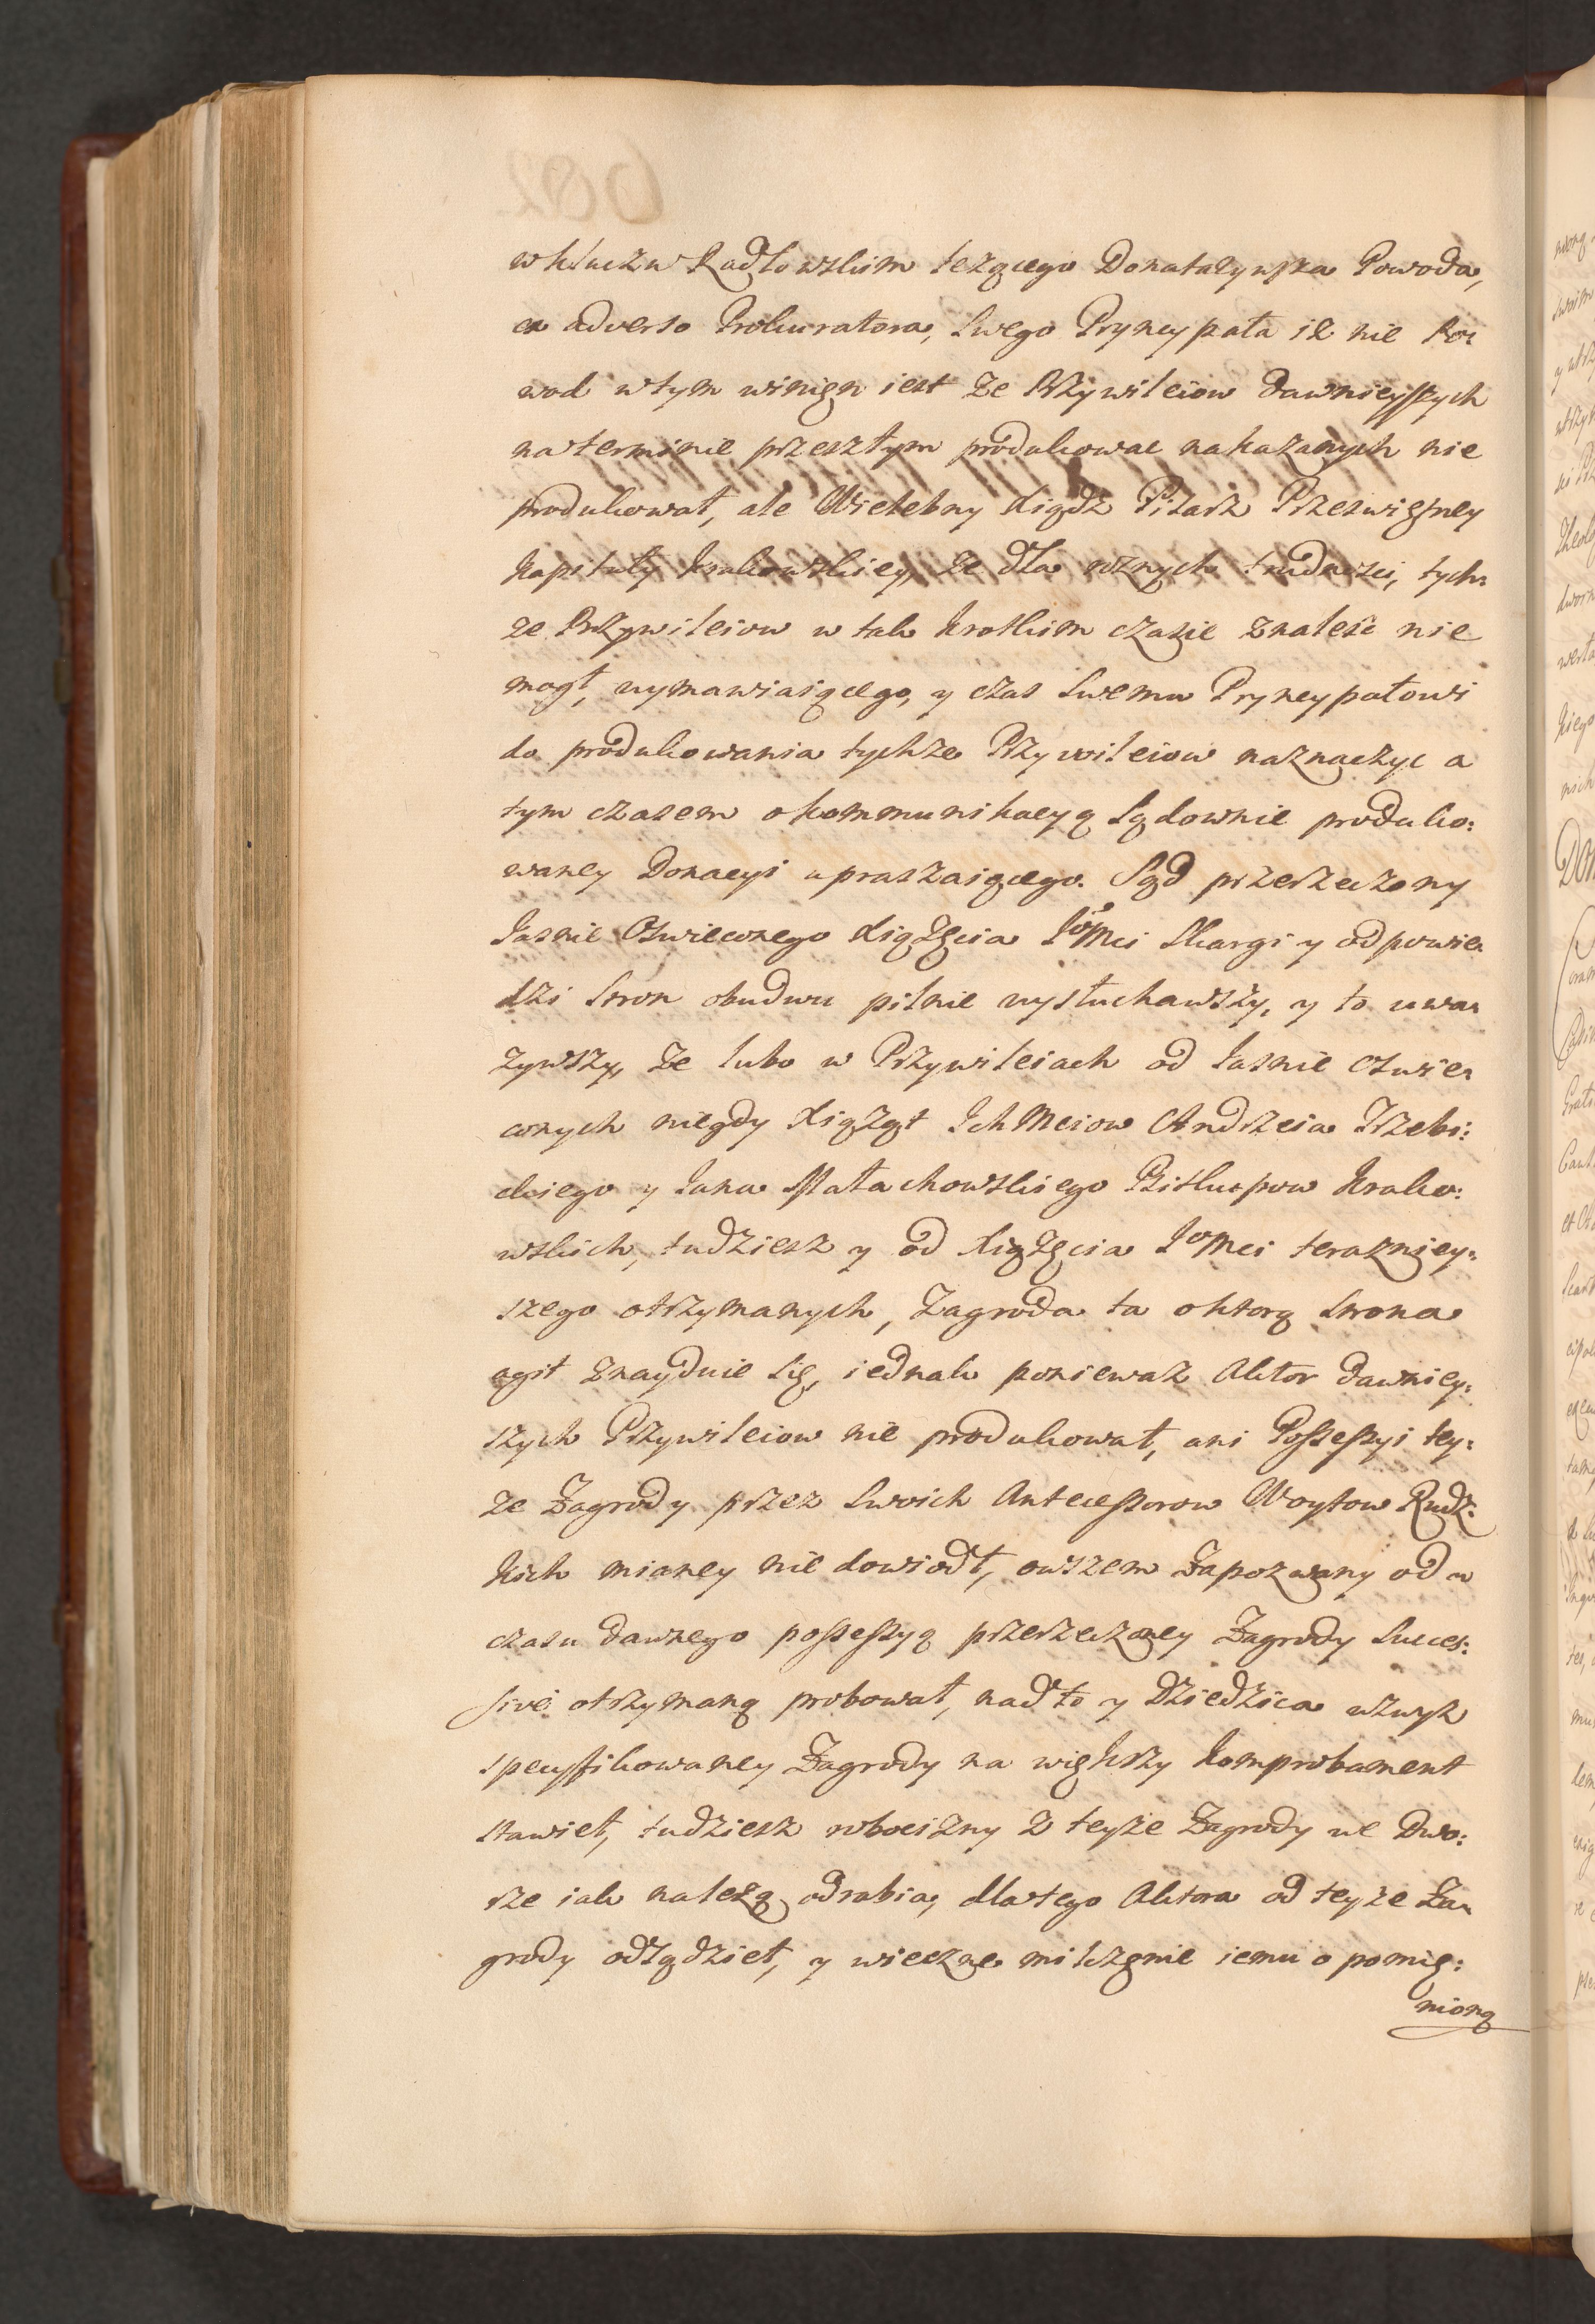 w kluczu Radłowskim leżącego Donataryusza Powoda,
ex adverso Prokuratora, Swego Pryncypała iż nie Po:
wod w tym winien iest że Przywileiow dawnieyszych
na terminie przeszłym produkowac nakazanych nie
produkował, ale Wielebny Xiądz Pisarz Prześwietney
Kapituły Krakowskiey, że dla roznych trudnosci, tych:
że Przywileiow w tak krotkim czasie znaleść nie
mogł, wymawiaiącego, y czas Swemu Pryncypałowi
do produkowania tychże Przywileiow naznaczyc a
tym czasem o kommunikacyą Sądownie produko:
waney Donacyi upraszaiącego. Sąd przerzeczony
Jasnie Oswieconego Xiążęcia JoMci Skargi y odpowie:
dzi Stron obudwu pilnie wysłuchawszy, y to uwa:
żywszy, że lubo w Przywileiach od Jasnie Oswie:
conych niegdy Xiążąt IchMciow Andrzeia Trzebi:
ckiego y Jana Małachowskiego Biskupow Krako:
wskich, tudziesz y od Xiążęcia JoMci terazniey:
szego otrzymanych, Zagroda ta o ktorą Strona
agit znayduie Się, iednak poniewaz Aktor dawniey:
szych Przywileiow nie produkował, ani Possessyi tey:
że Zagrody przez Swoich Antecessorow Woytow Rudz:
kich mianey nie dowiodł, owszem Zapozwany od
czasu dawnego possessyą przerzeczoney Zagrody Succes:
sive otrzymaną probował, nadto y Dziedzica wzwyż
specyfikowaney Zagrody na większy komprobament
stawiel, tudziesz robocizny z teyże Zagrody we Dwo:
rze iak należą odrabia, dlatego Aktora od teyże Za:
grody odsądzieł, y wieczne milczenie iemu o pomie:
nioną